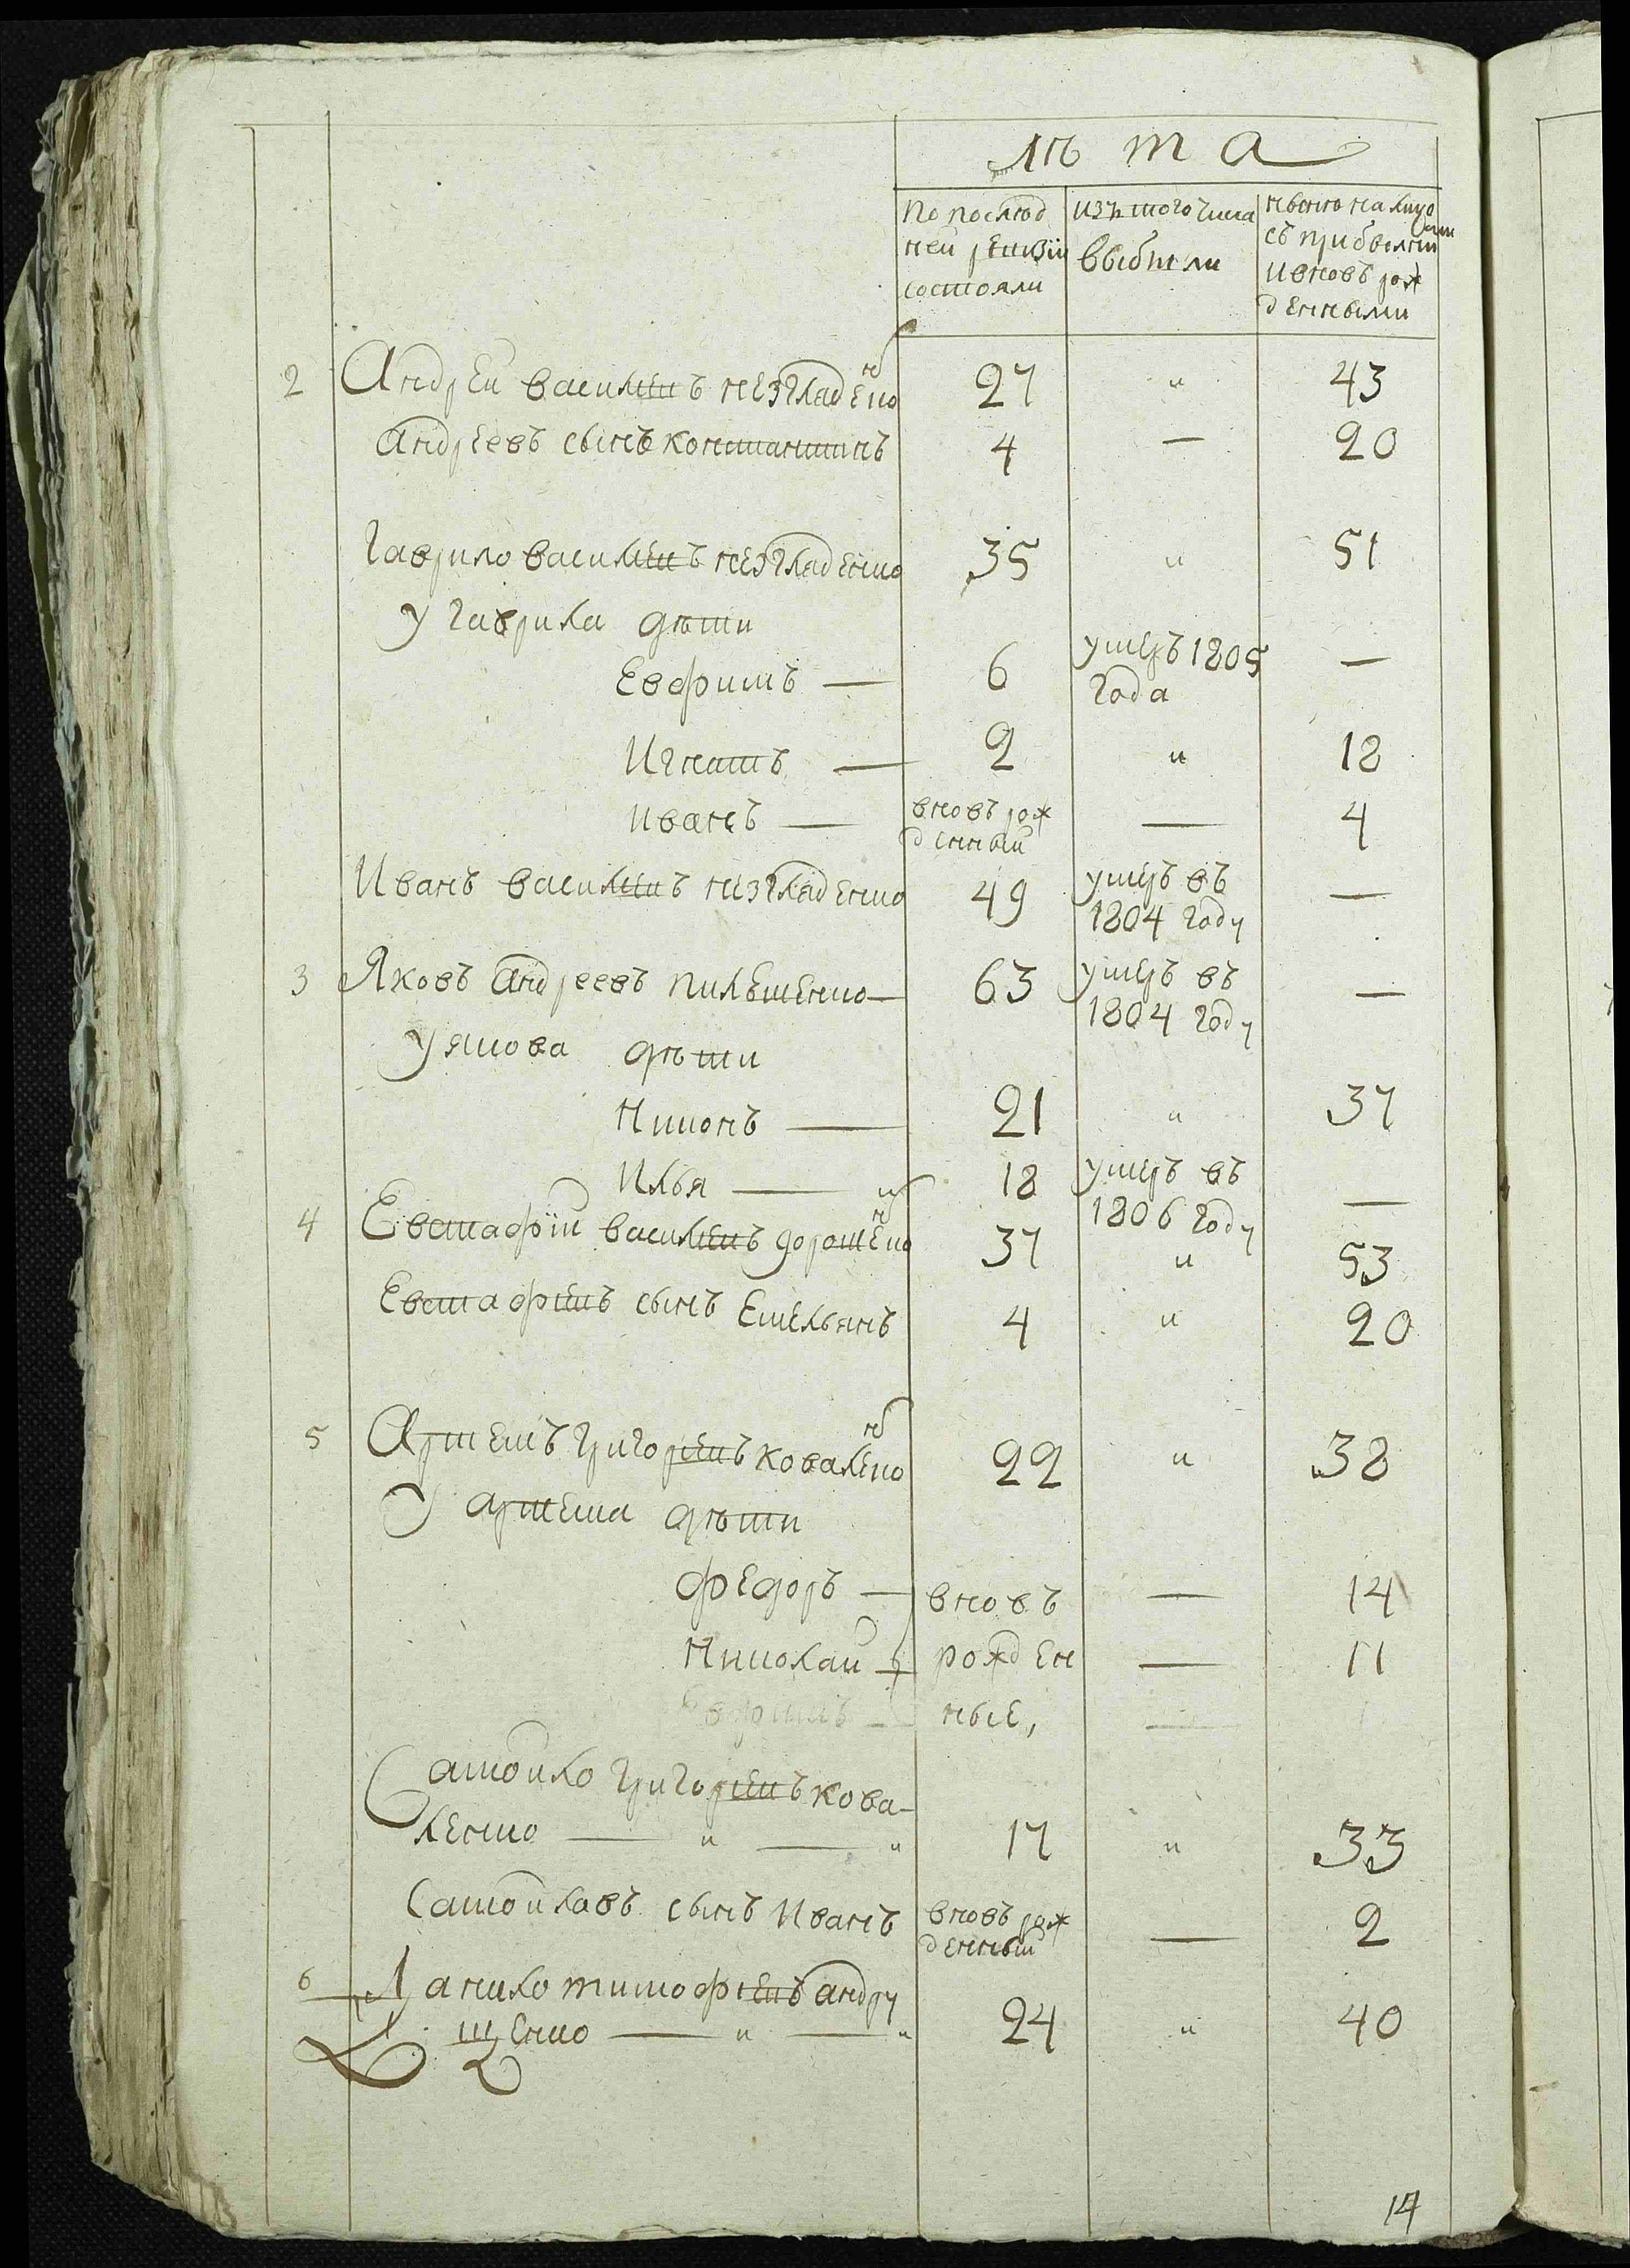 лѣта
По послѣд
ней ревизіи
состояли
изъ того числа
выбыли
нынѣ на лицо
съ прибылыми
и вновь рож
денными
2 Андрей васильевъ незгладенко 27 „ 43
Андреевъ сынъ константинъ 4 — 20
Гаврило васильевъ незгладенко 35 „ 51
У гаврила дѣти
Евфимъ — 6 умеръ 1805 —
года
Игнатъ — 2 „ 18
иванъ — вновь рож — 4
денный
Иванъ васильевъ незгладенко 49 умеръ въ —
1804 году
3 Яковъ андреевъ пилѣшенко — 63 умеръ въ —
1804 году
У якова дѣти
Никонъ — 21 „ 37
Илья — 18 умеръ въ —
1806 году
4 Евстафій васильевъ дорошенко 37 „ 53
Евстафьевъ сынъ Емельянъ 4 „ 20
5 Артемъ григорьевъ коваленко 22 „ 38
У артема дѣти
федоръ — вновь — 14
Николай — рожден — 11
ные, —
Самойло григорьевъ кова-
ленко — „ — „ 17 „ 33
Самойловъ сынъ Иванъ вновь рож — 2
денный
6 Данило тимофѣевъ андру
щенко — „ — „ 24 „ 40
14